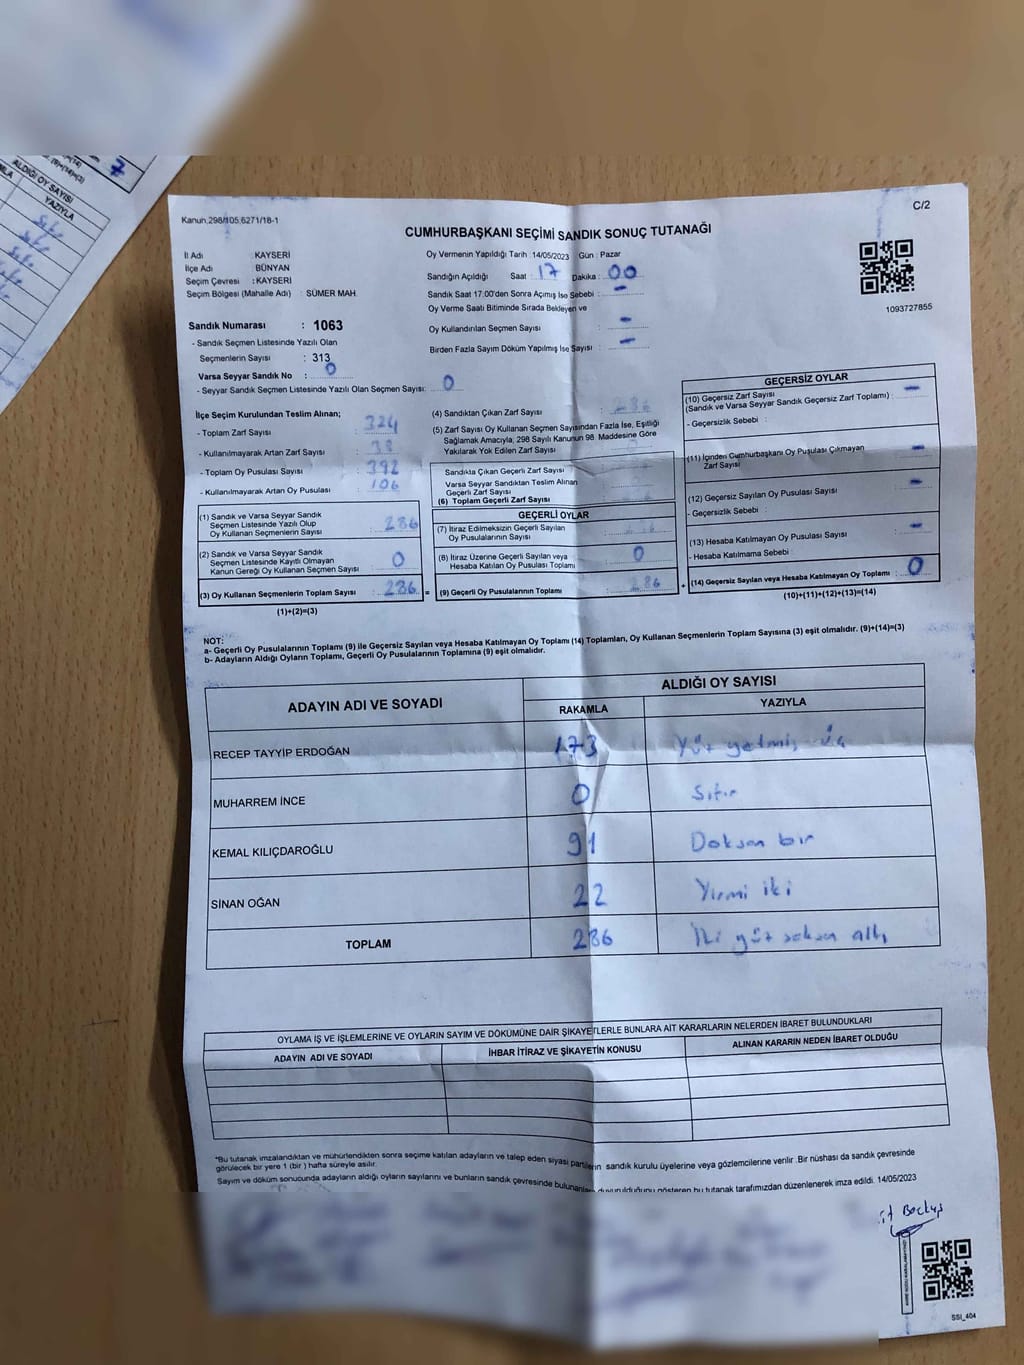 ALDIĞI OY SAYISI
YAZIYLA
7
C/2
Kanun.298/105.6271/18-1
CUMHURBAŞKANI SEÇİMİ SANDIK SONUÇ TUTANAĞI
İl Adı : KAYSERİ
İlçe Adı : BÜNYAN
Seçim Çevresi : KAYSERİ
Seçim Bölgesi (Mahalle Adı) : SÜMER MAH.
Oy Vermenin Yapıldığı Tarih : 14/05/2023 Gün : Pazar
Sandığın Açıldığı Saat : 17 Dakika : 00
Sandık Saat 17.00'den Sonra Açımış İse Sebebi : -
Oy Verme Saati Bitiminde Sırada Bekleyen ve
Oy Kullandırılan Seçmen Sayısı : -
Birden Fazla Sayım Döküm Yapılmış İse Sayısı : -
1093727855
Sandık Numarası : 1063
- Sandık Seçmen Listesinde Yazılı Olan
Seçmenlerin Sayısı : 313
Varsa Seyyar Sandık No : 0
- Seyyar Sandık Seçmen Listesinde Yazılı Olan Seçmen Sayısı: 0
İlçe Seçim Kurulundan Teslim Alınan;
- Toplam Zarf Sayısı : 324
- Kullanılmayarak Artan Zarf Sayısı : 38
- Toplam Oy Pusulası Sayısı : 392
- Kullanılmayarak Artan Oy Pusulası : 106
(1) Sandık ve Varsa Seyyar Sandık
Seçmen Listesinde Yazılı Olup
Oy Kullanan Seçmenlerin Sayısı : 286
(2) Sandık ve Varsa Seyyar Sandık
Seçmen Listesinde Kayıtlı Olmayan
Kanun Gereği Oy Kullanan Seçmen Sayısı : 0
(3) Oy Kullanan Seçmenlerin Toplam Sayısı : 286
(1)+(2)=(3)
(4) Sandıktan Çıkan Zarf Sayısı : 286
(5) Zarf Sayısı Oy Kullanan Seçmen Sayısından Fazla İse, Eşitliği
Sağlamak Amacıyla, 298 Sayılı Kanunun 98. Maddesine Göre
Yakılarak Yok Edilen Zarf Sayısı
Sandıkta Çıkan Geçerli Zarf Sayısı
Varsa Seyyar Sandıktan Teslim Alınan
Geçerli Zarf Sayısı
(6) Toplam Geçerli Zarf Sayısı
GEÇERLİ OYLAR
(7) İtiraz Edilmeksizin Geçerli Sayılan
Oy Pusulalarının Sayısı
(8) İtiraz Üzerine Geçerli Sayılan veya
Hesaba Katılan Oy Pusulası Toplamı : 0
= (9) Geçerli Oy Pusulalarının Toplamı : 286
GEÇERSİZ OYLAR
(10) Geçersiz Zarf Sayısı
(Sandık ve Varsa Seyyar Sandık Geçersiz Zarf Toplamı) : -
- Geçersizlik Sebebi :
(11) İçinden Cumhurbaşkanı Oy Pusulası Çıkmayan
Zarf Sayısı : -
(12) Geçersiz Sayılan Oy Pusulası Sayısı : -
- Geçersizlik Sebebi :
(13) Hesaba Katılmayan Oy Pusulası Sayısı : -
- Hesaba Katılmama Sebebi :
+ (14) Geçersiz Sayılan veya Hesaba Katılmayan Oy Toplamı : 0
(10)+(11)+(12)+(13)=(14)
NOT:
a- Geçerli Oy Pusulalarının Toplamı (9) ile Geçersiz Sayılan veya Hesaba Katılmayan Oy Toplamı (14) Toplamları, Oy Kullanan Seçmenlerin Toplam Sayısına (3) eşit olmalıdır. (9)+(14)=(3)
b- Adayların Aldığı Oyların Toplamı, Geçerli Oy Pusulalarının Toplamına (9) eşit olmalıdır.
ADAYIN ADI VE SOYADI ALDIĞI OY SAYISI
RAKAMLA YAZIYLA
RECEP TAYYİP ERDOĞAN 173 Yüz yetmiş üç
MUHARREM İNCE 0 Sıfır
KEMAL KILIÇDAROĞLU 91 Doksan bir
SİNAN OĞAN 22 Yirmi iki
TOPLAM 286 İki yüz seksen altı
OYLAMA İŞ VE İŞLEMLERİNE VE OYLARIN SAYIM VE DÖKÜMÜNE DAİR ŞİKAYETLERLE BUNLARA AİT KARARLARIN NELERDEN İBARET BULUNDUKLARI
ADAYIN ADI VE SOYADI İHBAR İTİRAZ VE ŞİKAYETİN KONUSU ALINAN KARARIN NEDEN İBARET OLDUĞU
*Bu tutanak imzalandıktan ve mühürlendikten sonra seçime katılan adayların ve talep eden siyasi partilerin sandık kurulu üyelerine veya gözlemcilerine verilir. Bir nüshası da sandık çevresinde
görülecek bir yere 1 (bir) hafta süreyle asılır.
Sayım ve döküm sonucunda adayların aldığı oyların sayılarını ve bunların sandık çevresinde bulunanlara duyurulduğunu gösteren bu tutanak tarafımızdan düzenlenerek imza edildi. 14/05/2023
SSİ_404